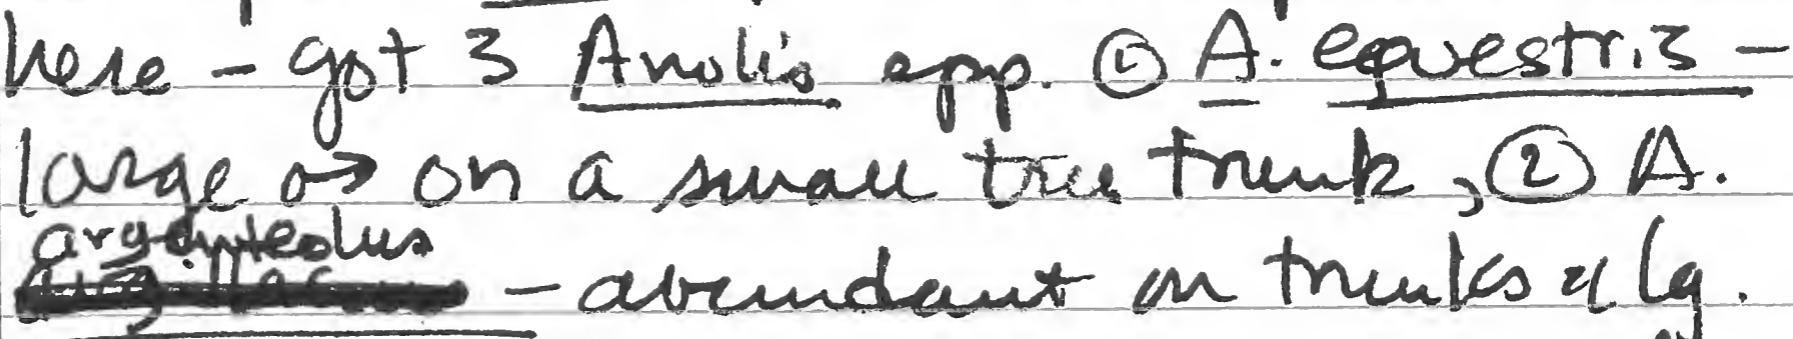 here - got 3 Anolis spp. ① A. equestris -
large ♂ on a small tree trunk, ② A.
argenteolus
- abundant on trunks of lg.